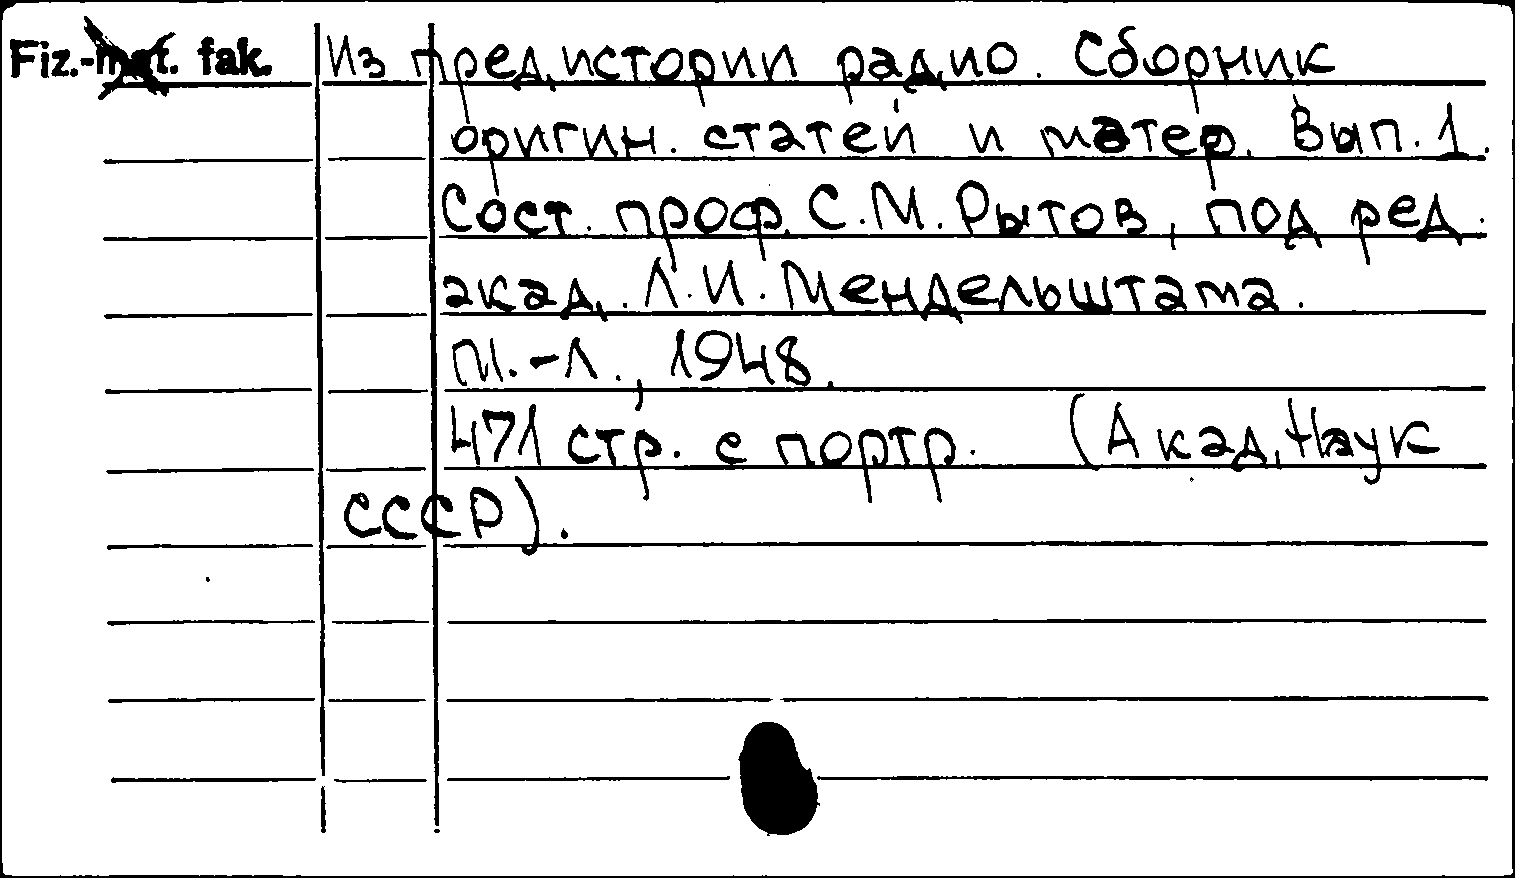 Fiz.-mat. fak.
Из предистории радио. Сборник
оригин. статей и матер. Вып. 1.
Сост. проф. С.М. Рытов, под ред.
акад. Л.И. Мендельштама.
М.-Л., 1948.
471 стр. с портр. (Акад. Наук
СССР).